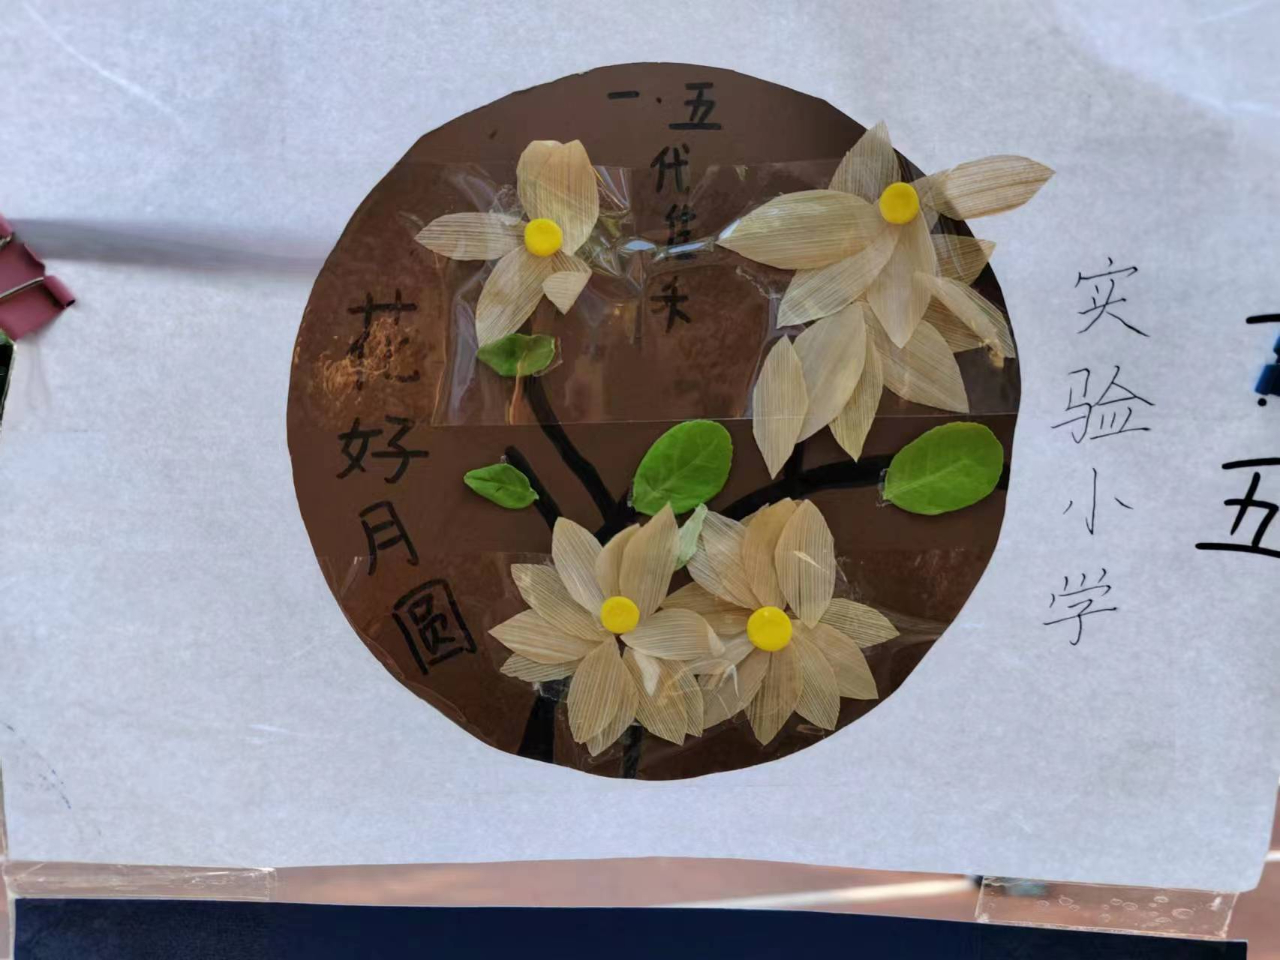 一.五
代佳禾
花好月圆
实验小学
五